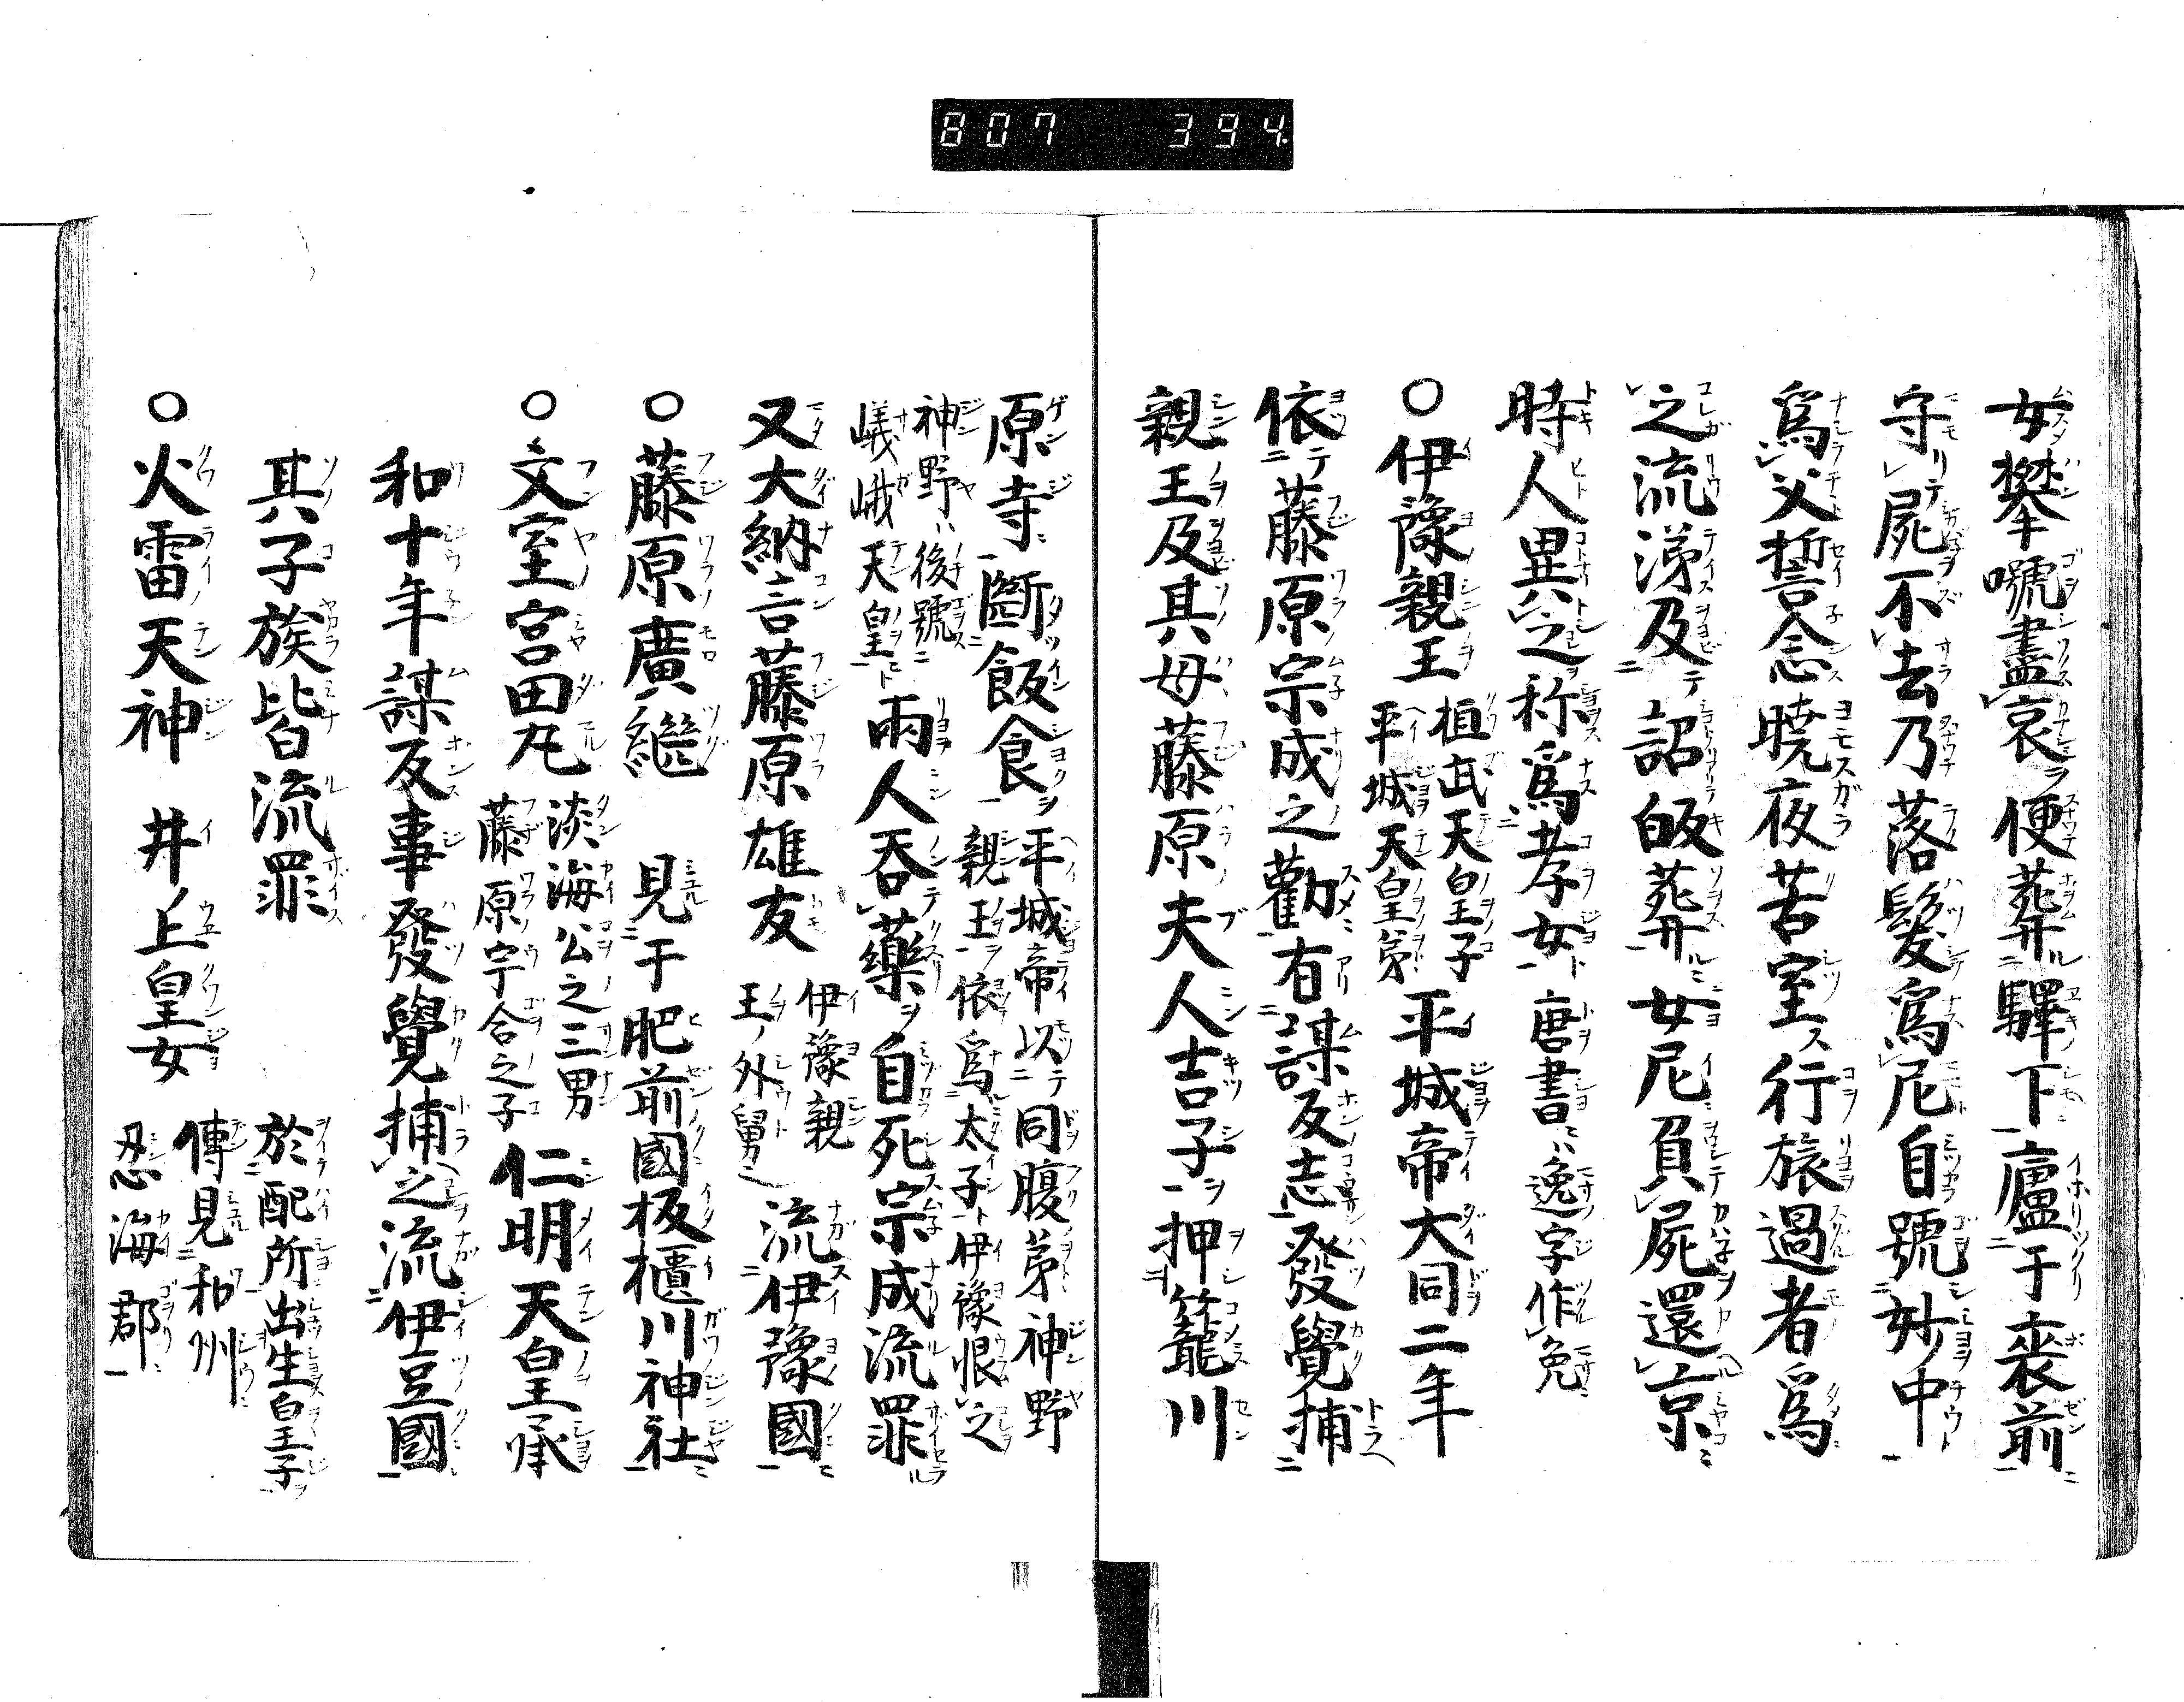 807 394.
女攀號盡哀便葬驛下廬于喪前
守屍不去乃落髮爲尼自號妙冲
爲父誓念曉夜苦室行旅過者爲
之流涕及詔皈葬女尼負屍還京
時人異之称爲孝女 唐書ニハ逸字作免
○伊豫親王 桓武天皇子
平城天皇第 平城帝大同二年
依テ藤原宗成之勸有謀反志發覺捕
親王及其母藤原夫人吉子ヲ押籠川
原寺斷飯食ヲ 平城帝以テ同腹第神野
親王ヲ依爲太子ト伊豫恨之
神野ハ後號
嵯峨天皇ト 兩人吞藥ヲ自死宗成流罪
又大納言藤原雄友 伊豫親
王ノ外舅ニ 流伊豫國
○藤原廣繼 見于肥前國板櫃川神社
○文室宮田丸 淡海公之三男
藤原宇合之子 仁明天皇承
和十年謀反事發覺捕之流伊豆國
其子族皆流罪
○火雷天神 井ノ上皇女 於配所出生皇子ヲ
傳見和州
忍海郡